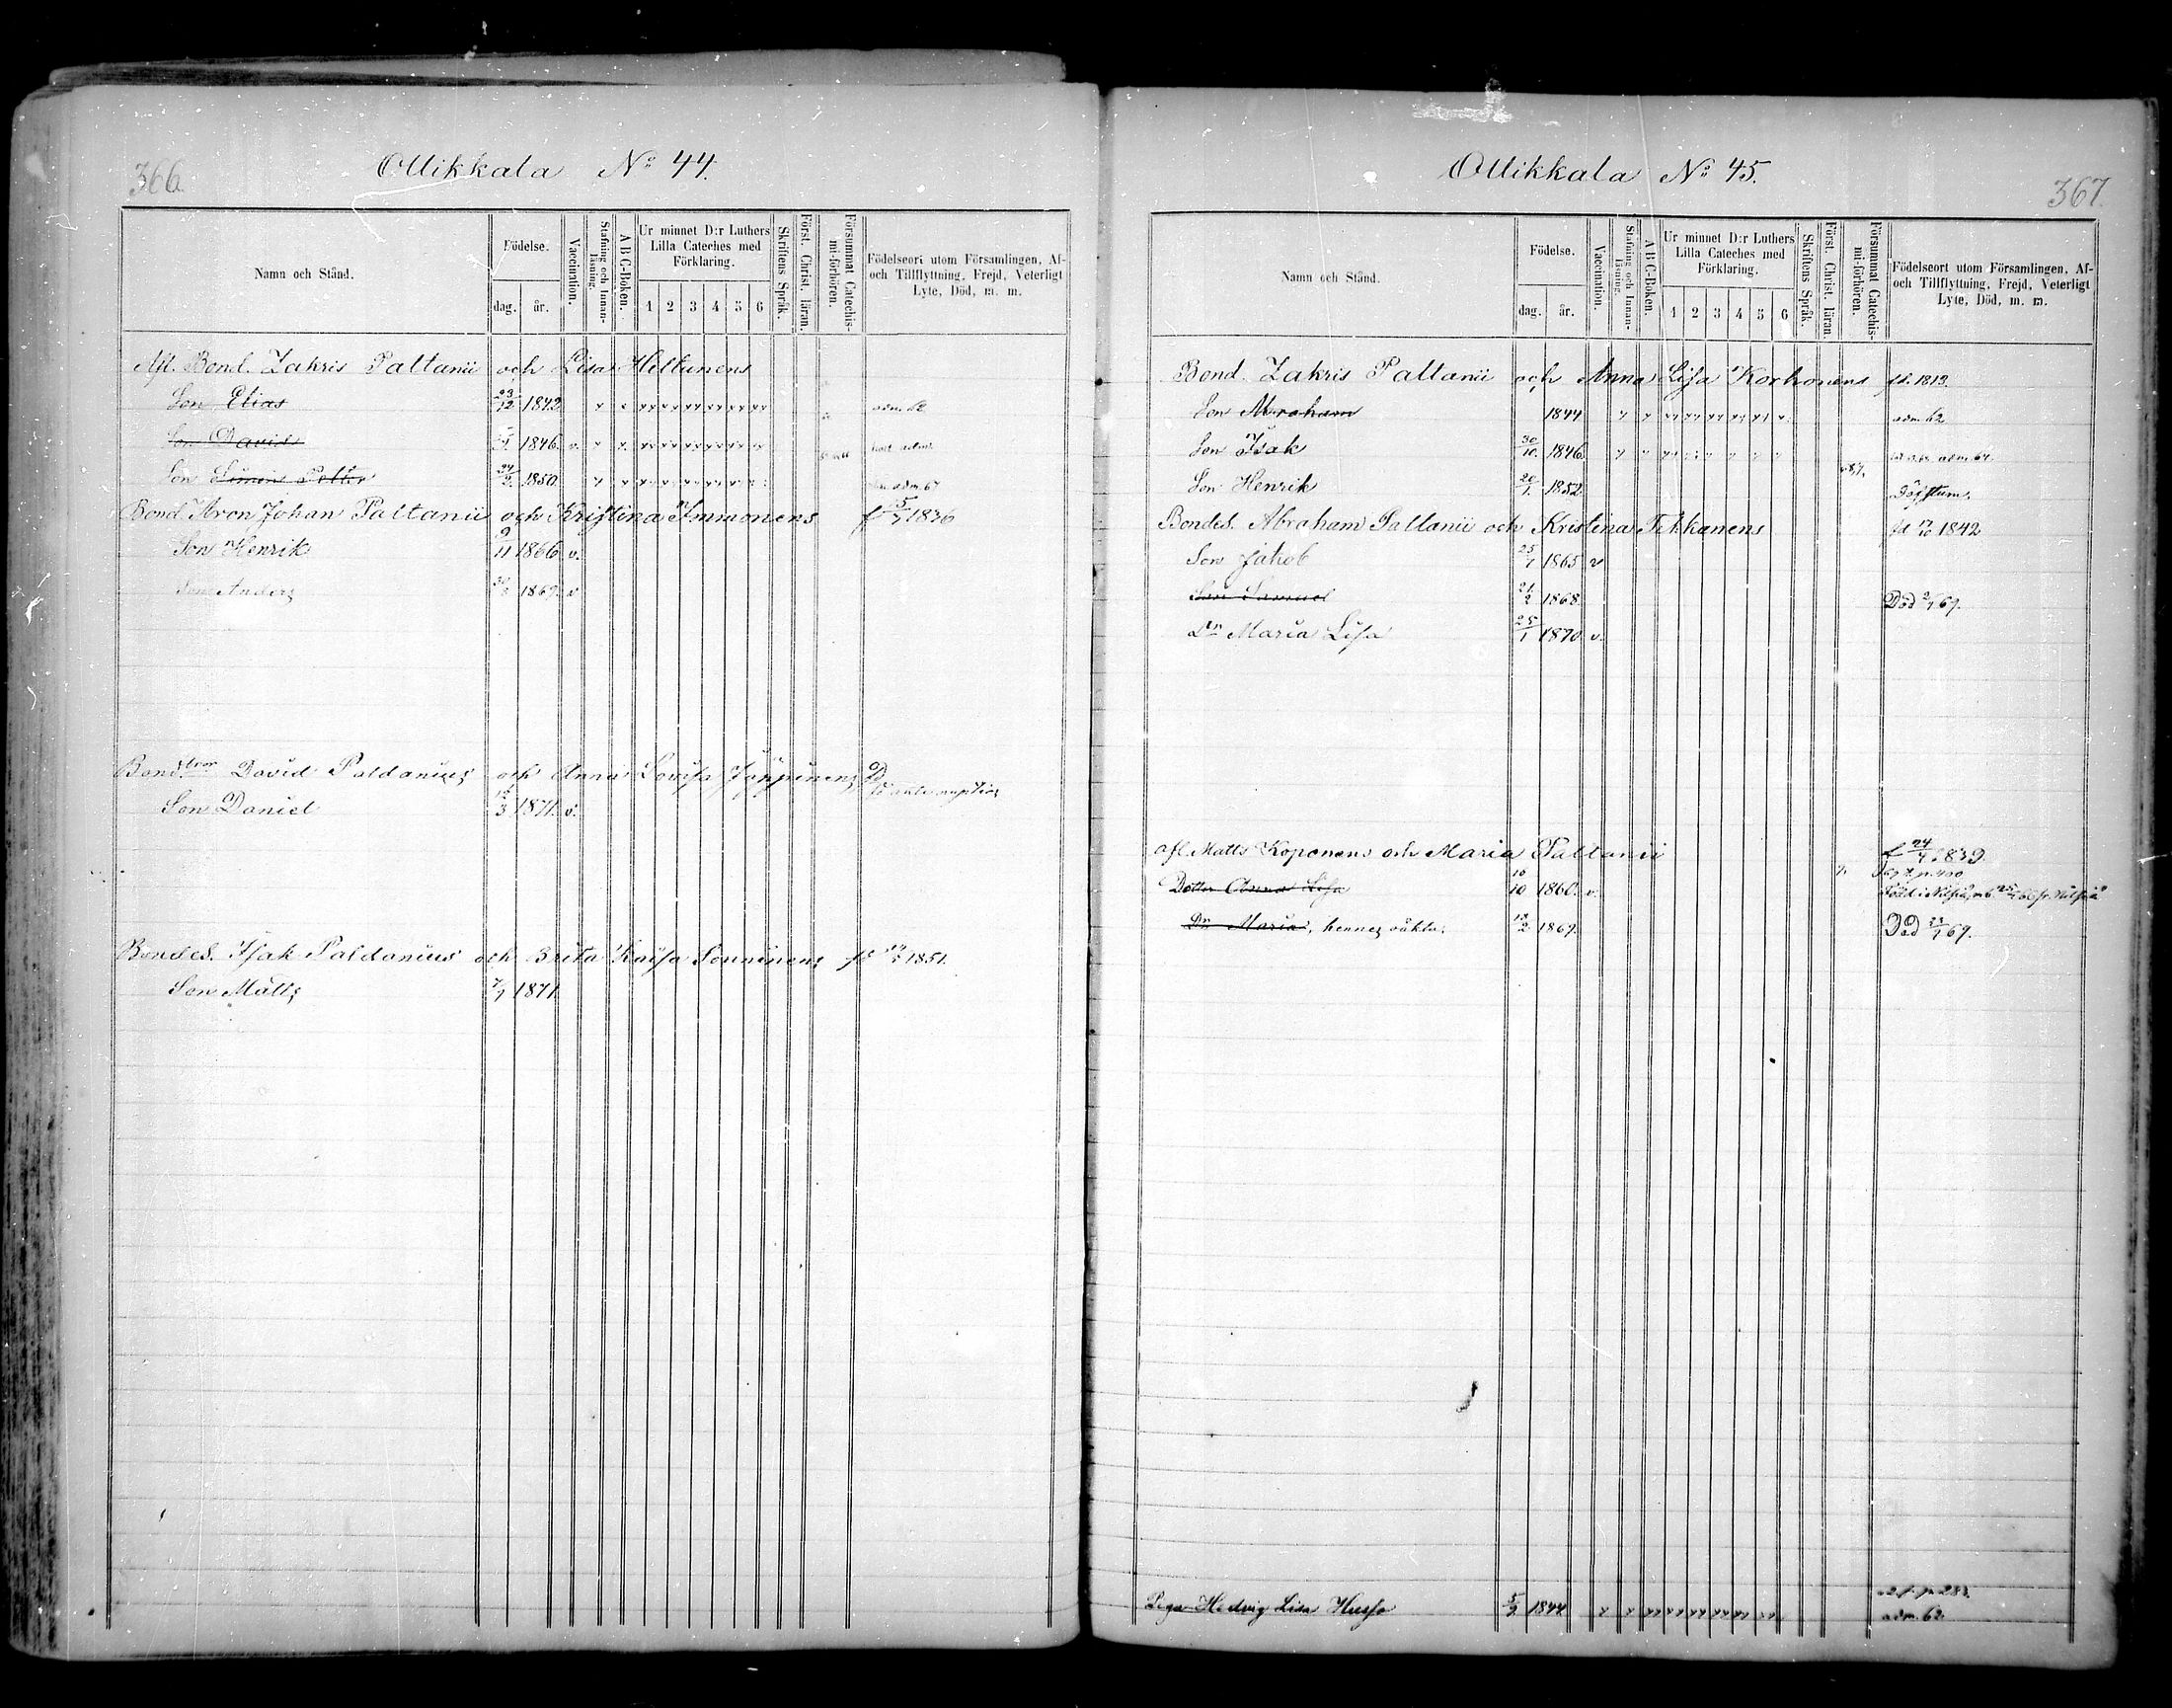 366.
Ollikkala No 44.
Namn och Stånd.
Födelse.
dag. år.
Vaccination.
Stafning och Innan-
läsning.
A B C-Boken.
Ur minnet D:r Luthers
Lilla Cateches med
Förklaring.
1 2 3 4 5 6
Skriftens Språk.
Först. Christ. läran.
Försummat Catechis-
mi-förhören.
Födelseort utom Församlingen, Af-
och Tillflyttning, Frejd, Veterligt
Lyte, Död, m. m.
Afl. Bond. Zakris Paltanii och Lisa Hiltunens
Son Elias 23/12 1843 adm 62
Son David 1846. v.
Son Simon Petter 24/2 1850 adm 67
Bond Aron Johan Paltanii och Kristina Immonens f 5/7 1836
Son Henrik 9/11 1866 v.
Son Anders 1869 v
Bond.bror David Paldanius och Anna Lovisa Jäppinens
Son Daniel 3 1871. v.
Bondes. Isak Paldanius och Brita Kaisa Sonninens 1851.
Son Matts 1871
Ollikkala No 45.
367.
Namn och Stånd.
Födelse.
dag. år.
Vaccination.
Stafning och Innan-
läsning.
A B C-Boken.
Ur minnet D:r Luthers
Lilla Cateches med
Förklaring.
1 2 3 4 5 6
Skriftens Språk.
Först. Christ. läran
Försummat Catechis-
mi-förhören.
Födelseort utom Församlingen, Af-
och Tillflyttning, Frejd, Veterligt
Lyte, Död, m. m.
Bond. Zakris Paltanii och Anna Lisa Korhonens fd. 1813.
Son Abraham 1844 adm 62
Son Isak 30/10. 1846 adm 64.
Son Henrik 20/1. 1852 Döfstum.
Bondes. Abraham Paltanii och Kristina Tekkanens fd 1842
Son Jakob 25/1 1865 v
Son Samuel 21/2 1868 Död 69.
Dr Maria Lisa 25/1 1870 v.
Afl. Matts Koponens och Maria Paltanii f 24/4 1839
Dotter Anna Lisa 10/10 1860. v.
Dr Maria, hennes oäkta. 13/2 1869. Död 23/7 69.
Piga Hedvig Lisa Husso 5/9 1844 adm. 62